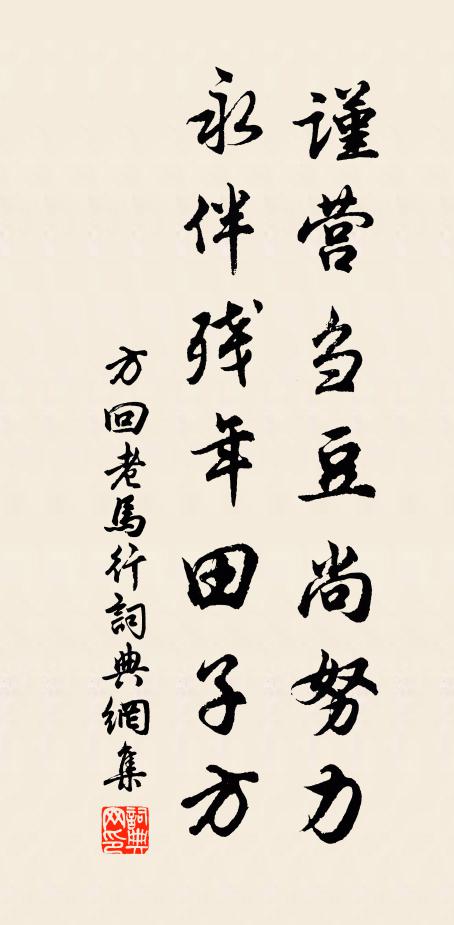 謹营刍豆尚努力
永伴残年田子方
方回老馬行詞典網集
詞典网印